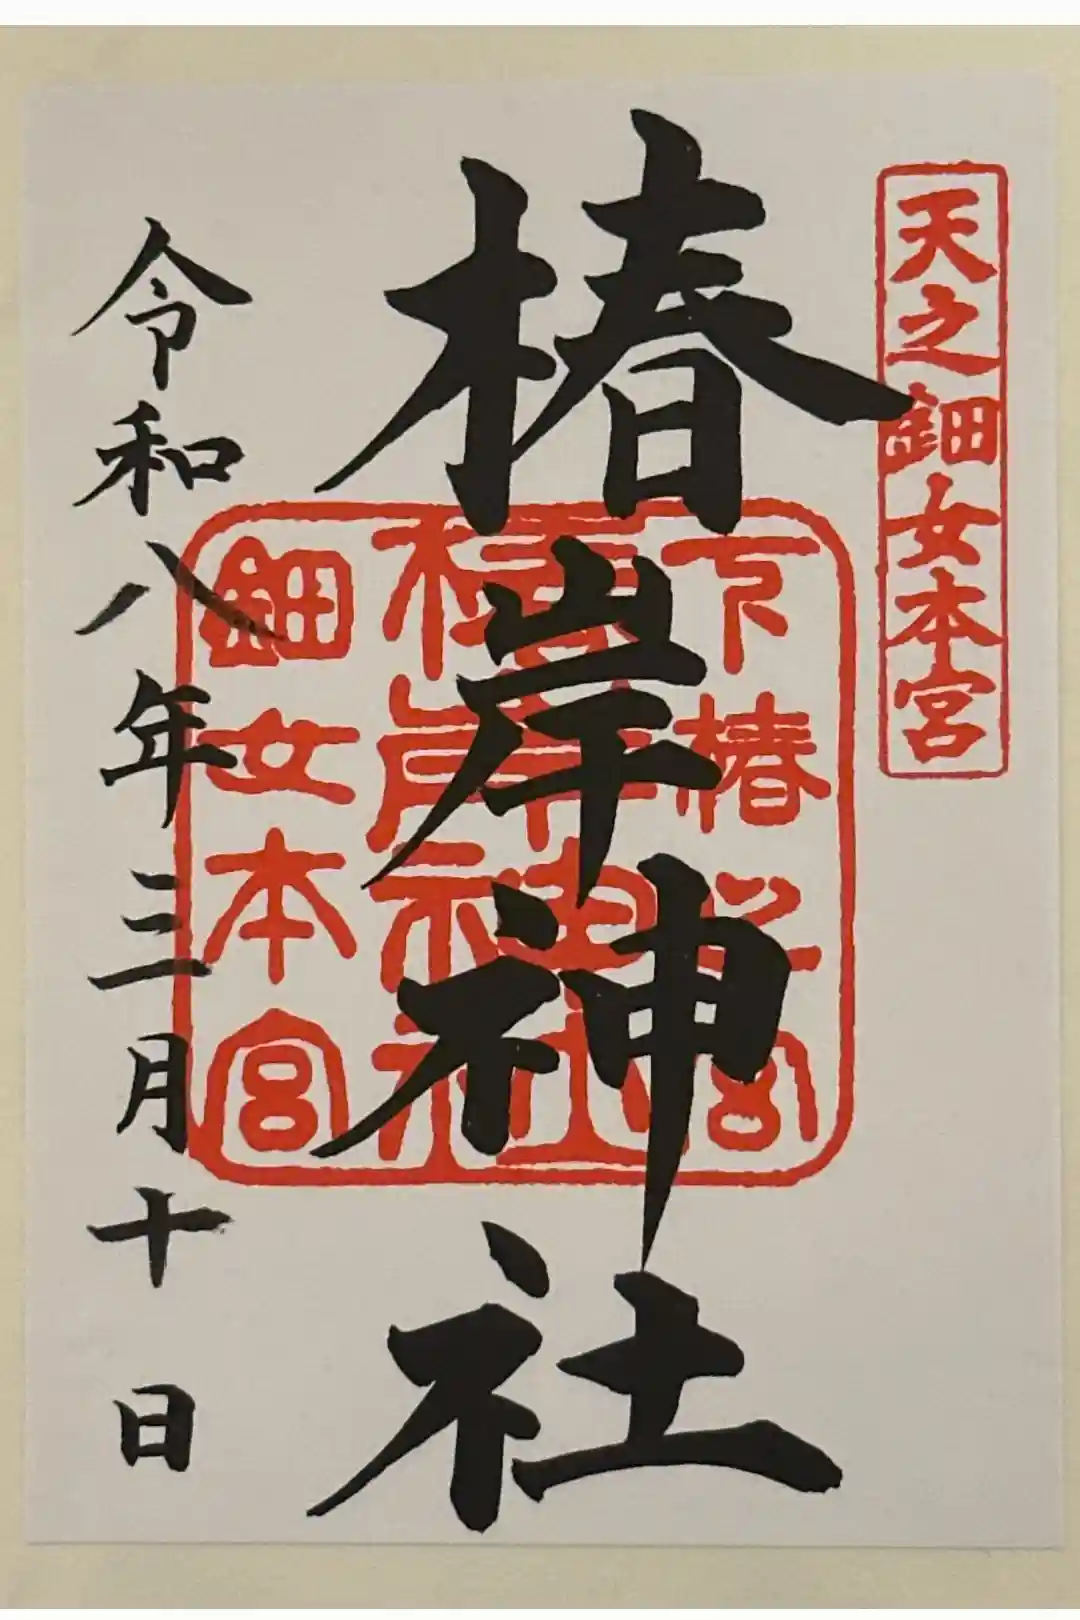 天之鈿女本宮
椿岸神社
令和八年三月十日
下椿
鈿女本宮